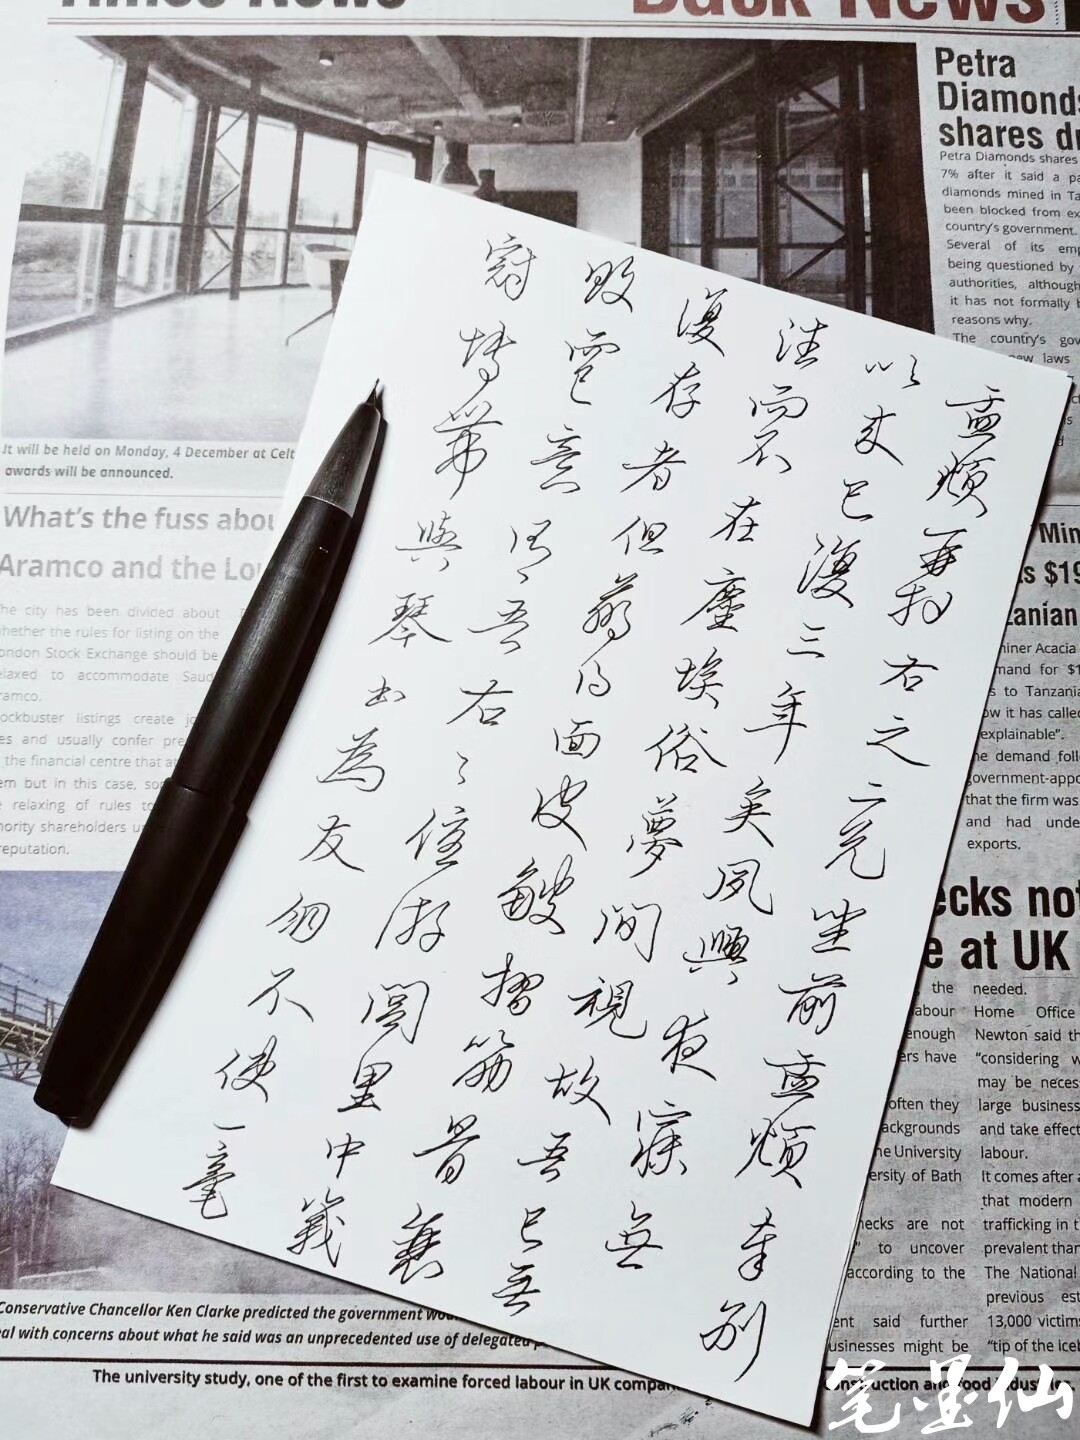 Times News
Back News
孟頫再拜右之二兄坐前孟頫奉别
以来已復三年矣夙興夜寐無
往而不在塵埃俗夢間視故吾已無
復存者但羸得面皮皺摺筋骨衰
敗而已意謂吾右之優游閭里中峩
冠博帶與琴書為友朋不使一毫
It will be held on Monday, 4 December at Celt
awards will be announced.
What's the fuss abou
Aramco and the Lo
The city has been divided about
whether the rules for listing on the
London Stock Exchange should be
relaxed to accommodate Saudi
Aramco.
ockbuster listings create jo
es and usually confer pre
the financial centre that at
em but in this case, so
e relaxing of rules to
nority shareholders u
reputation.
Petra
Diamonds
shares dr
Petra Diamonds shares
7% after it said a pa
diamonds mined in Ta
been blocked from ex
country's government.
Several of its emp
being questioned by
authorities, although
it has not formally b
reasons why.
The country's gov
new laws
Min
s $19
zanian
niner Acacia
mand for $1
s to Tanzania
ow it has called
explainable".
he demand foll
government-appo
that the firm was
and had unde
exports.
ecks not
e at UK
the
labour
enough
ers have
often they
ackgrounds
he University
ersity of Bath
hecks are not
to uncover
according to the
ent said further
usinesses might be
needed.
Home Office
Newton said th
"considering w
may be neces
large business
and take effect
labour.
It comes after a
that modern
trafficking in t
prevalent than
The National
previous est
13,000 victims
"tip of the iceb
Conservative Chancellor Ken Clarke predicted the government wou
eal with concerns about what he said was an unprecedented use of delegated p
The university study, one of the first to examine forced labour in UK compan
onstruction and food industries
笔墨仙